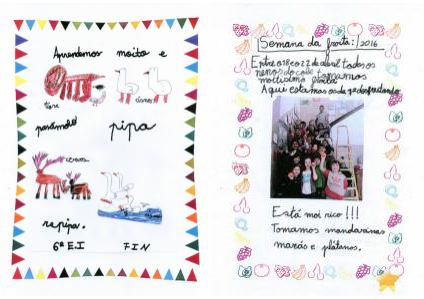 Aprendemos moito e
cisnes
parámolo
pipa
cervos
repipa.
6º E.I
FIN
Semana da froita: 2016
Entre o 18 e o 22 de abril todos os
nenos do cole tomamos
moitísima froita
Aquí estamos os de 1º disfrutando
Está moi rico!!!
Tomamos mandarinas
mazás e plátanos.